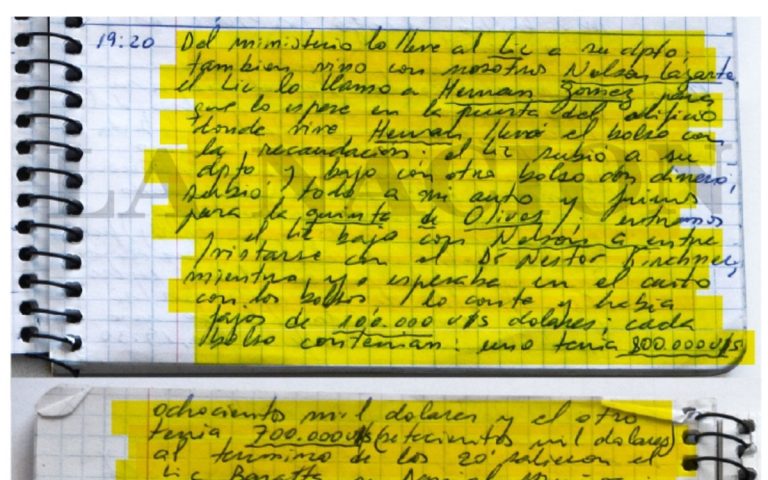 19:20 Del ministerio lo lleve al Lic a su dpto;
tambien vino con nosotros Nelson Lazarte
el Lic lo llamo a Hernan Gomez para
que lo espere en la puerta del edificio
donde vive Hernan llevó el bolso con
la recaudacion; el Lic subió a su
dpto y bajo con otro bolso con dinero,
subio todo a mi auto y fuimos
para la quinta de Olivos y entramos
y el Lic bajo con Nelson a entre
vistarse con el Dr Nestor Kirchner,
mientras yo esperaba en el auto
con los bolsos, lo conte y habia
fajos de 100.000 u$s dolares; cada
bolso contenian: uno tenia 800.000 u$s
ochocientos mil dolares y el otro
tenia 700.000 u$s (setecientos mil dolares)
al termino de los 20' salieron el
Lic Baratta
LA NACION